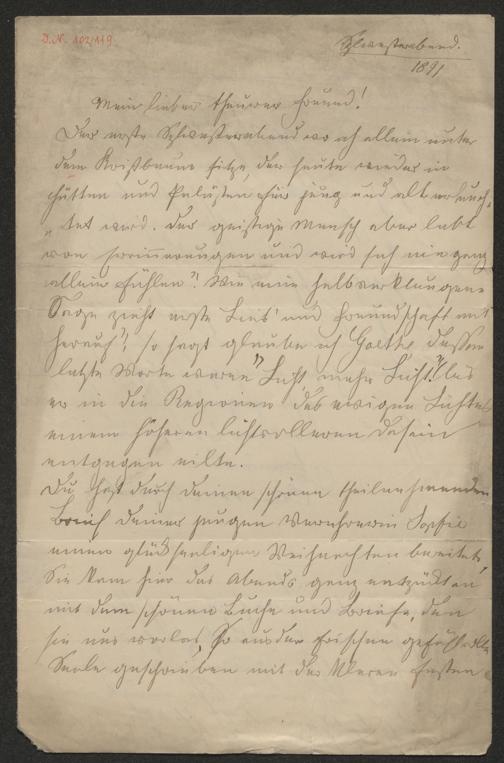 D.N. 102/119
Sylvesterabend.
1891
Mein lieber theurer Freund!
Der erste Sylvesterabend wo ich allein unter
dem Kristbaume sitze, der heute wieder in
Hütten und Palästen für jung und alt erleuch-
tet wird. Der geistige Mensch aber lebt
von Erinnerungen und wird sich nie ganz
allein fühlen". Wie eine halbverklungene
Sage zieht erste Lieb' und Freundschaft mit
herauf", so sagt glaube ich Goethe dessen
letzte Worte waren "Licht mehr Licht." als
er in die Regionen des ewigen Lichtes
einem höheren lichtvolleren Dasein
entgegen eilte.
Du hast durch deinen schönen theilnehmenden
Brief deiner jungen Verehrerin Sophie
einen glückseeligen Weihnachten bereitet,
Sie kam hier des Abends ganz entzückt an
mit dem schönen Buche und Briefe, den
sie uns vorlas, So aus der frischen gefühlvollen
Seele geschrieben mit der klaren festen